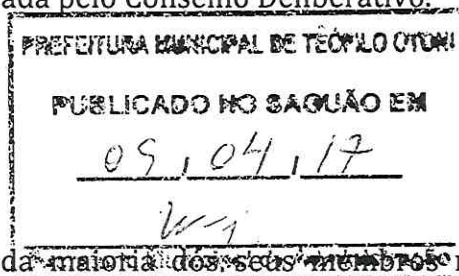 ada pelo Conselho Deliberativo.
PREFEITURA MUNICIPAL DE TEÓFILO OTONI
PUBLICADO NO SAGUÃO EM
05 / 04 / 17
da maioria dos seus membros